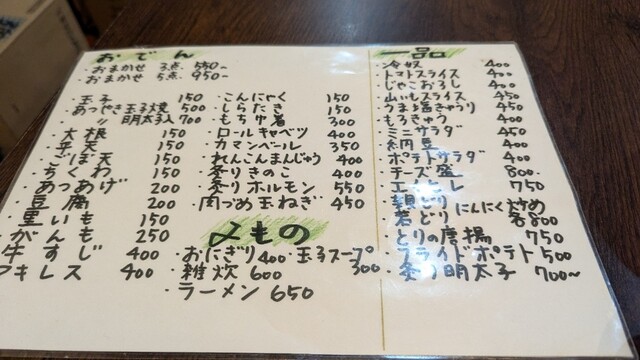 おでん
・おまかせ 3点. 550〜
・おまかせ 5点. 950〜
・玉子 150
あつやき玉子焼 500
・〃 明太子入 700
・大根 150
・平天 150
・ごぼ天 150
・ちくわ 150
・あつあげ 200
・豆腐 200
・里いも 150
・がんも 250
牛すじ 400
アキレス 400
・こんにゃく 150
・しらたき 150
・もち巾着 300
・ロールキャベツ 400
・カマンベール 350
・れんこんまんじゅう 400
・炙りきのこ 400
・炙りホルモン 550
・肉づめ玉ねぎ 450
〆もの
・おにぎり 400
・玉子スープ 300
・雑炊 600
・ラーメン 650
一品
・冷奴 400
・トマトスライス 400
・じゃこおろし 400
・山いもスライス 450
・うま塩きゅうり 450
・もろきゅう 400
・ミニサラダ 450
・納豆 400
・ポテトサラダ 400
・チーズ盛 800.
・エイヒレ 750
・親どり
若どり にんにく炒め 各800
・とりの唐揚 750
・フライドポテト 500
・炙り明太子 700〜